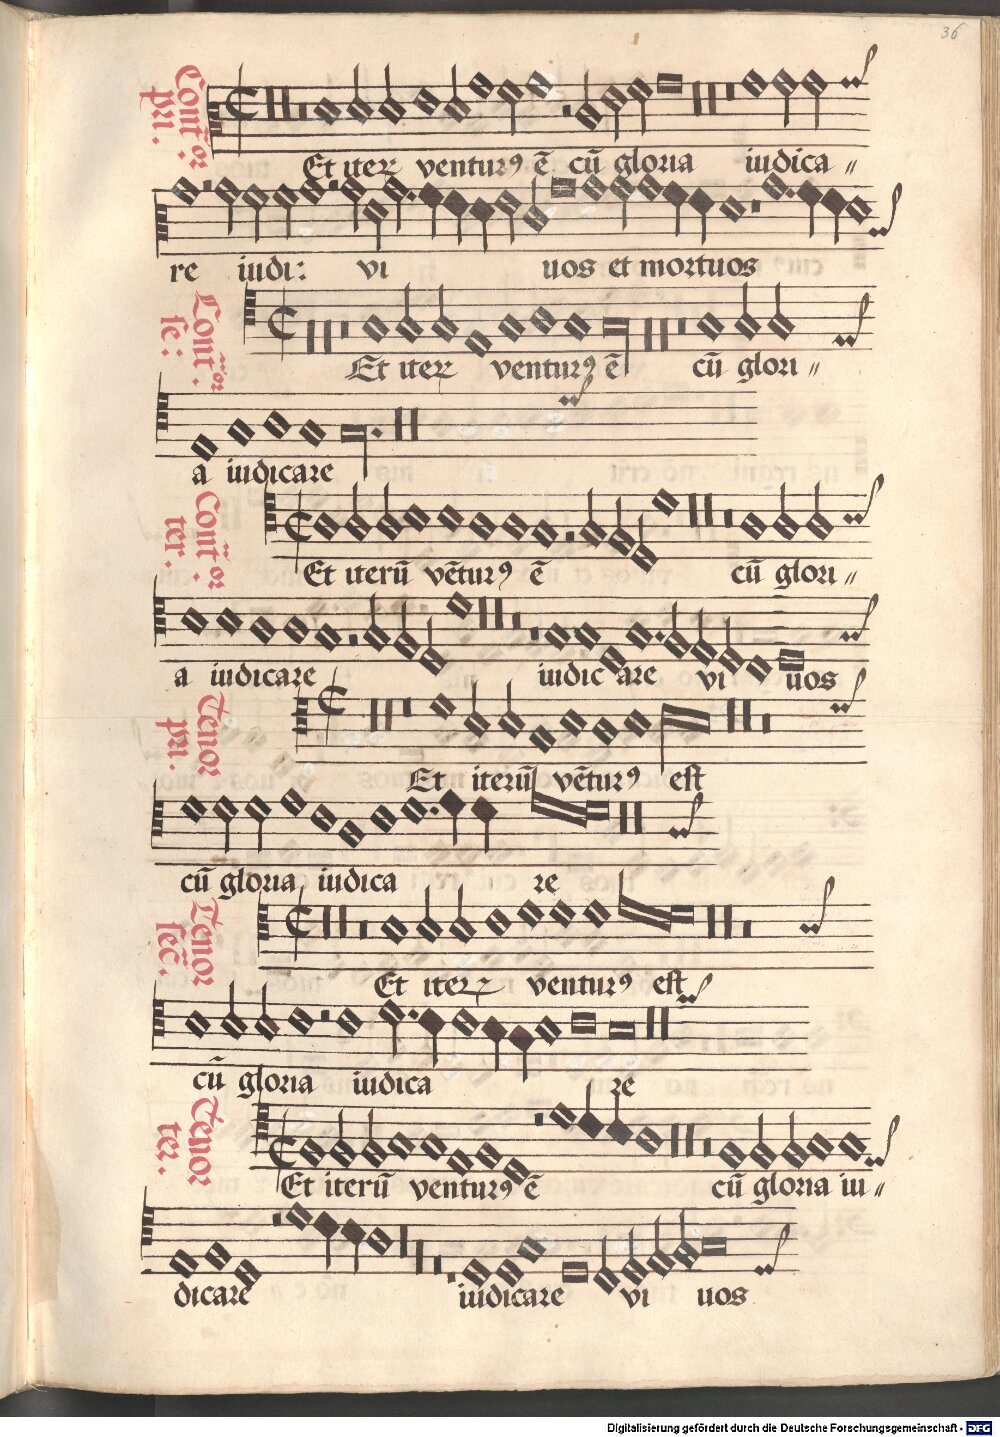 36
Contr̄or pri.
Et iterꝝ venturꝰ ē cū gloria iudica〃
re iudi: vi uos et mortuos
Contr̄or se:
Et iterꝝ venturꝰ ē cū glori〃
a iudicare
Contr̄or ter.
Et iterū vēturꝰ ē cū glori〃
a iudicare iudicare vi uos
Tenor pri.
Et iterū vēturꝰ est
cū gloria iudica re
Tenor sec̄.
Et iterꝝ venturꝰ est
cū gloria iudica re
Tenor ter.
Et iterū venturꝰ ē cū gloria iu〃
dicare iudicare vi uos
Digitalisierung gefördert durch die Deutsche Forschungsgemeinschaft - DFG